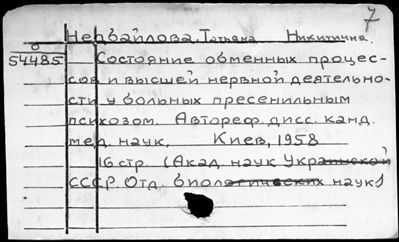 7
Нервайлова, Татьяна Никитична.
54485 Состояние обменных процес-
сов и высшей нервной деятельно-
сти у больных пресенильным
психозом. Автореф. дисс. канд.
мед. наук, Киев, 1958
16 стр. (Акад. наук Украинской
СССР. Отд. биологических наук)